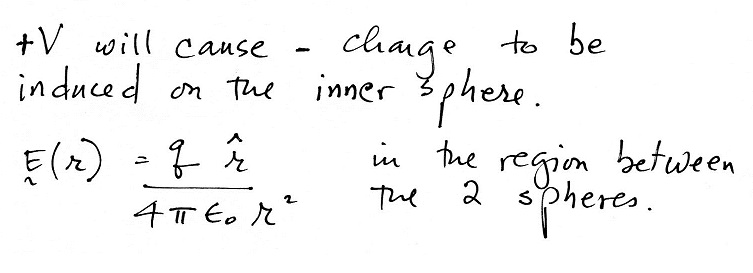 +V will cause - charge to be
induced on the inner sphere.
E(r) = q r̂ / 4πϵ₀ r² in the region between
the 2 spheres.